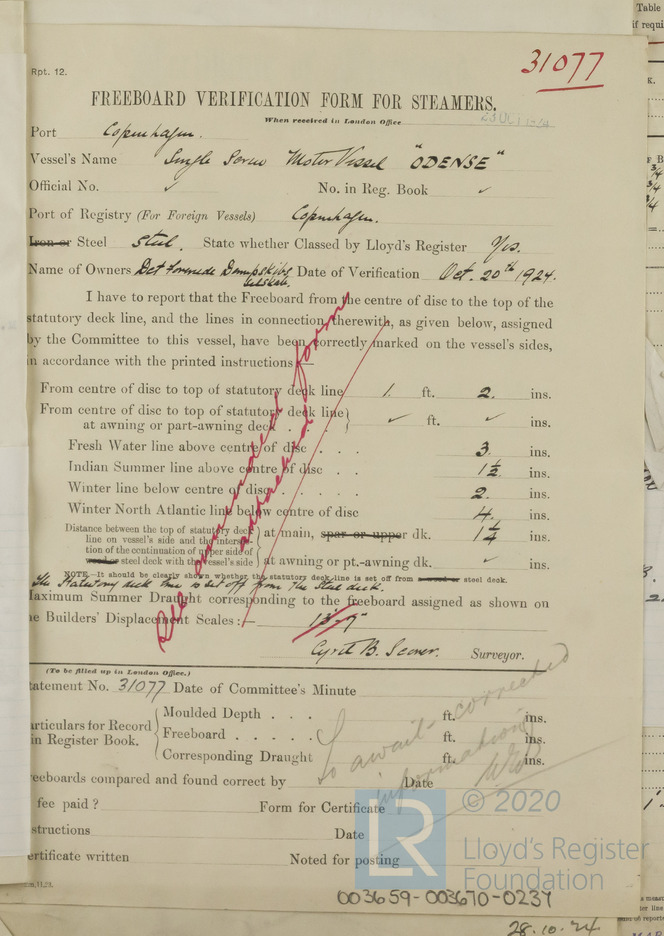 Table
if requi
31077
Rpt. 12.
FREEBOARD VERIFICATION FORM FOR STEAMERS.
When received in London Office
Port Copenhagen.
Vessel's Name Single Screw Motor Vessel "ODENSE"
Official No. ✓ No. in Reg. Book ✓
Port of Registry (For Foreign Vessels) Copenhagen.
Iron or Steel Steel. State whether Classed by Lloyd's Register Yes.
Name of Owners Det Forenede Dampskibs Selskab. Date of Verification Oct. 20th 1924.
I have to report that the Freeboard from the centre of disc to the top of the
statutory deck line, and the lines in connection therewith, as given below, assigned
by the Committee to this vessel, have been correctly marked on the vessel's sides,
in accordance with the printed instructions:—
From centre of disc to top of statutory deck line 1. ft. 2. ins.
From centre of disc to top of statutory deck line
at awning or part-awning deck . . ✓ ft. ✓ ins.
Fresh Water line above centre of disc . . . 3. ins.
Indian Summer line above centre of disc . . . 1½ ins.
Winter line below centre of disc . . . . . 2. ins.
Winter North Atlantic line below centre of disc 4. ins.
Distance between the top of statutory deck
line on vessel's side and the intersec-
tion of the continuation of upper side of
wood or steel deck with the vessel's side
at main, spar or upper dk. 1¼ ins.
at awning or pt.-awning dk. ✓ ins.
NOTE.—It should be clearly shown whether the statutory deck line is set off from wood or steel deck.
The Statutory deck line is set off from the Steel deck.
Maximum Summer Draught corresponding to the freeboard assigned as shown on
he Builders' Displacement Scales:—
See amended form attached
Cyril B. Scorer. Surveyor.
(To be filled up in London Office.)
tatement No. 31077 Date of Committee's Minute
articulars for Record
in Register Book.
Moulded Depth . . . ft. ins.
Freeboard . . . . ft. ins.
Corresponding Draught ft. ins.
To await corrected information
reeboards compared and found correct by Date
fee paid ? Form for Certificate
structions Date
ertificate written Noted for posting
LR
© 2020
Lloyd's Register
Foundation
003659-003670-0237
28.10.24